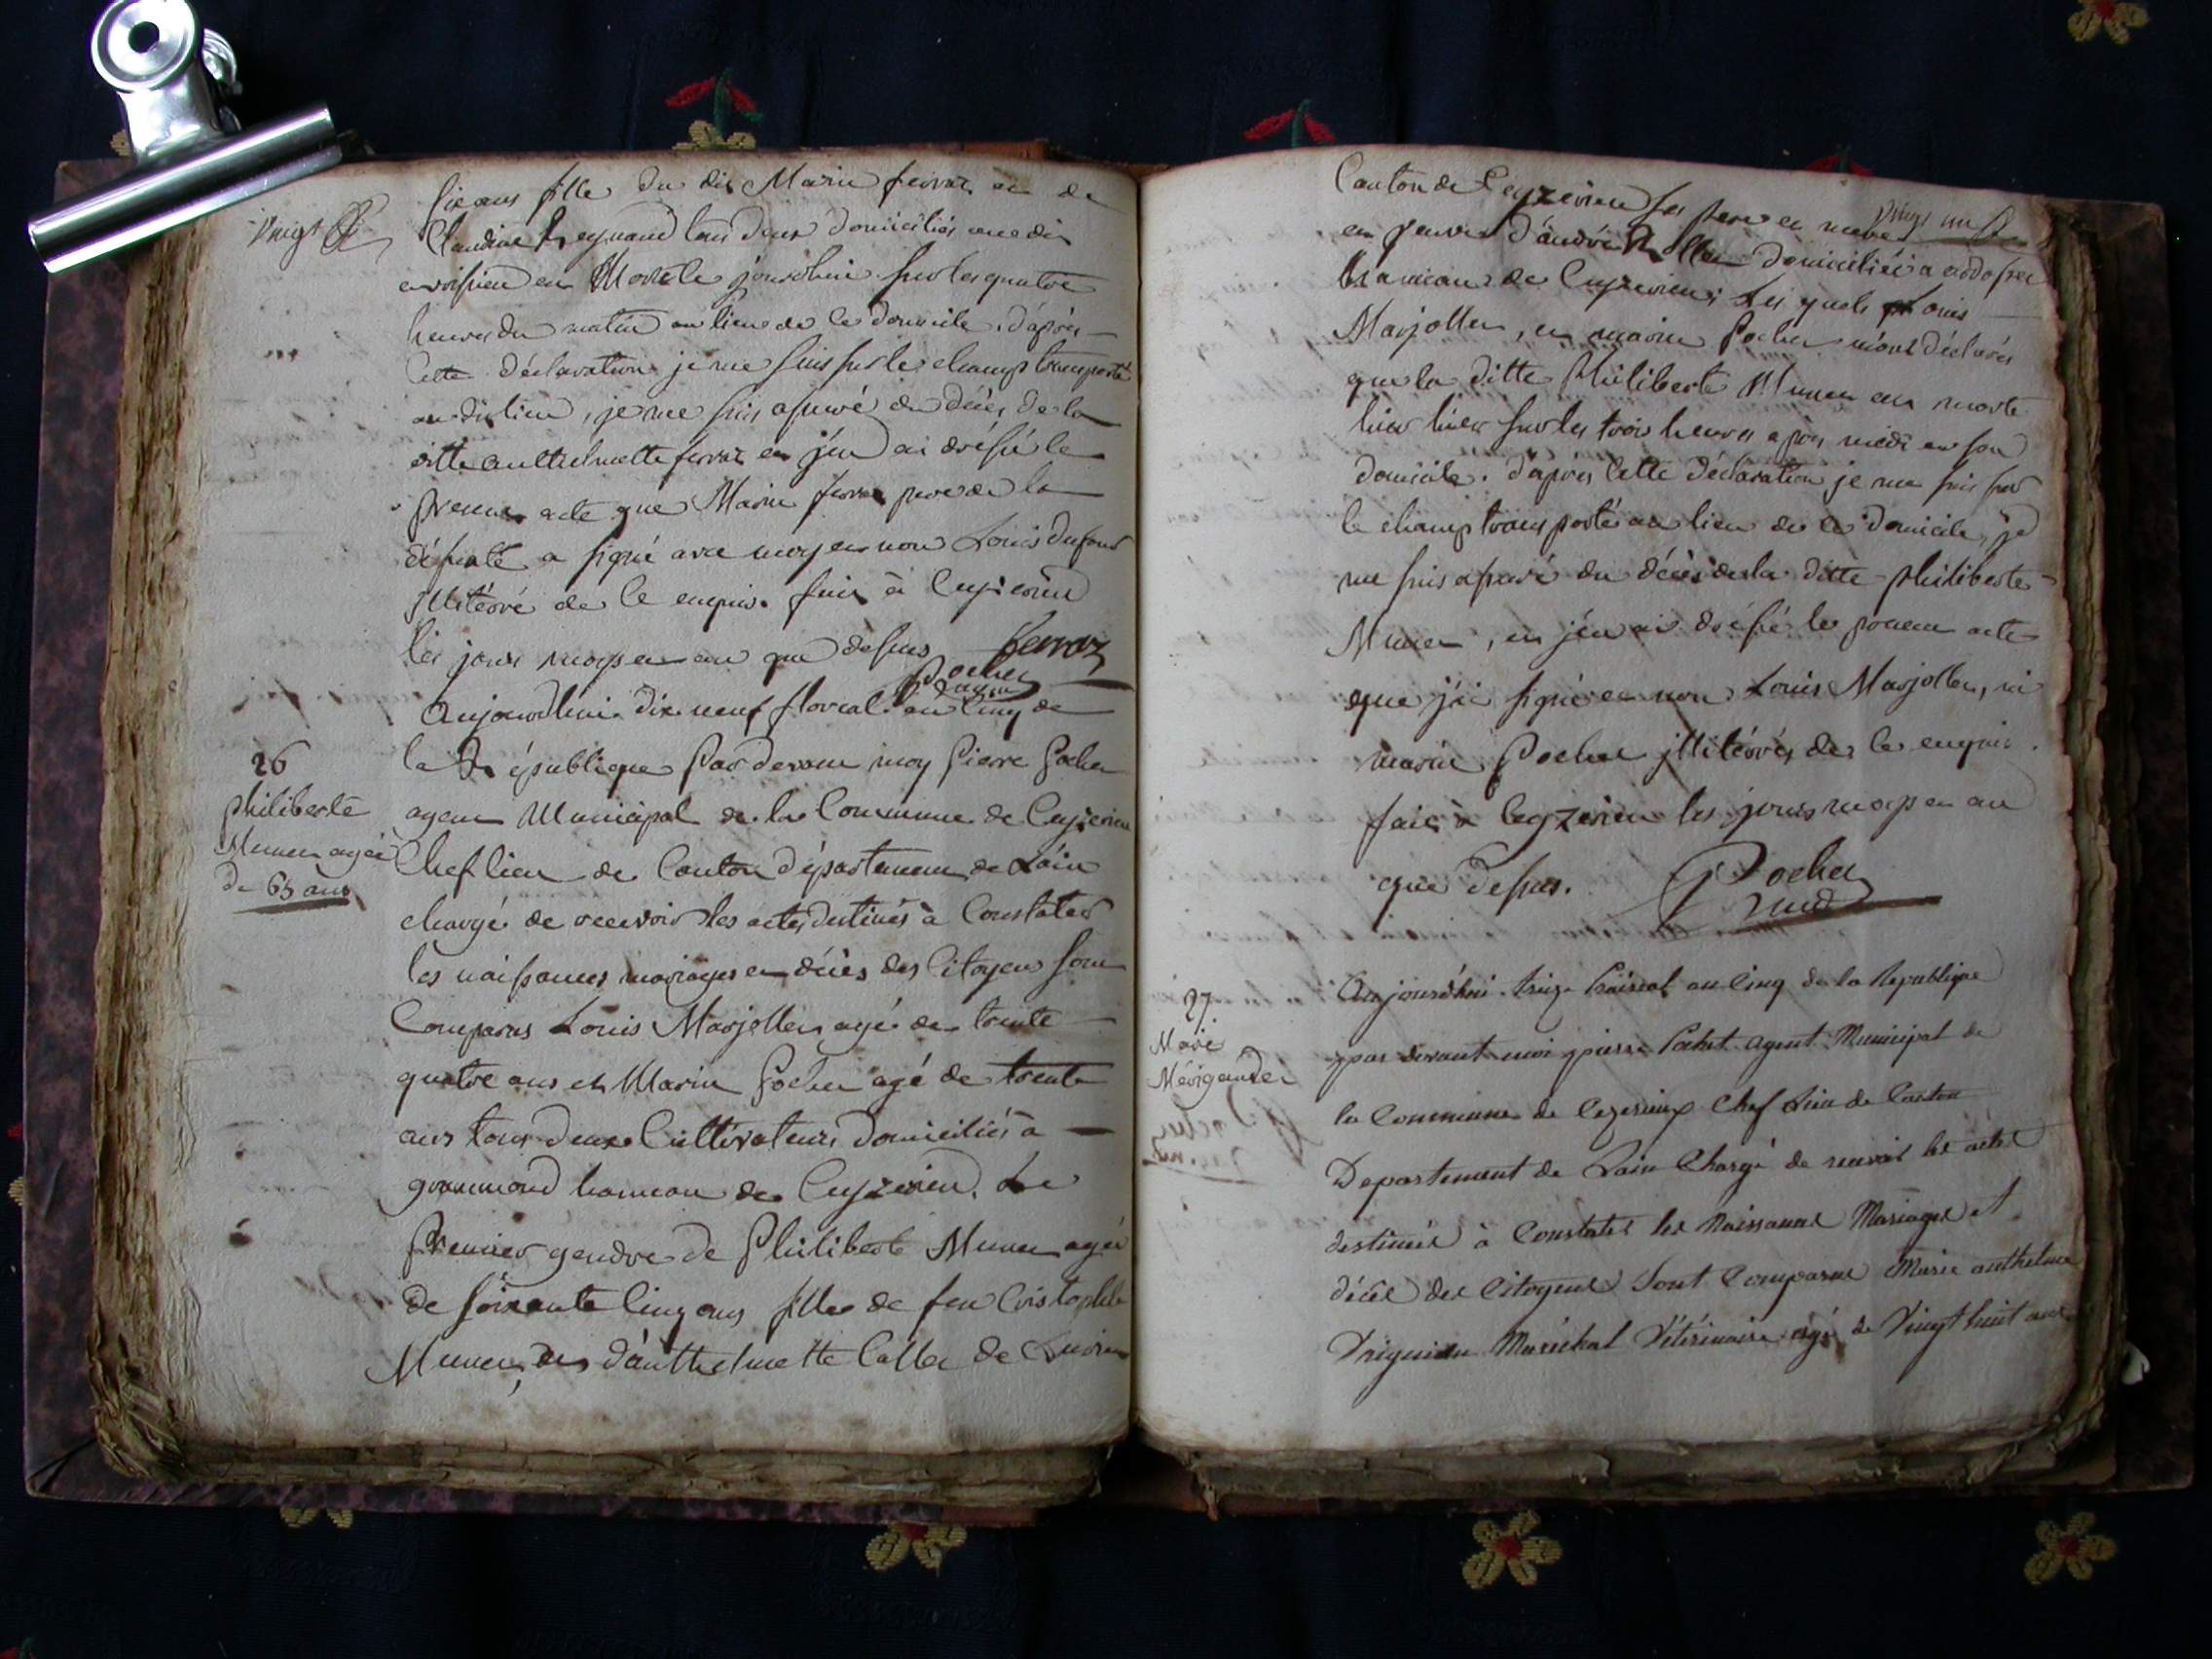 Vingt
six ans fille du dit Marin ferraz et de
Claudine Reynaud tous deux domiciliés audit
en Morte jourdhui sur les quatre
heures du matin au lieu de ce domicile. d'après
cette déclaration je me suis sur le champ transporté
audit lieu, je me suis assuré du décès de la
ditte anthelmette ferraz et j'en ai dressé le
present acte que Marin ferraz pere de la
a signé avec moy et non Louis dufour
illitéré de ce enquis. fait à Ceyzerieu
les jours moys et an que dessus ferraz
Pochet
agent
26
philiberte
Munet agée
de 65 ans
Aujourdhui dix neuf floréal an cinq de
la République Pardevant moy Pierre Pochet
agent Municipal de la Commune de Ceyzerieu
Chef lieu de Canton département de Lain
chargé de recevoir les actes destinés à Constater
les naissances mariages et décès des Citoyens sont
Comparus Louis Marjollet agé de trente
quatre ans et Marin Pochet agé de trente
ans tous deux Cultivateurs domiciliés à
grammond hameau de Ceyzerieu. Le
Premier gendre de Philiberte Munet agée
de soixante cinq ans fille de feu Cristophle
Munet, et d'anthelmette Callet de
Vingt un
Canton de Ceyzerieu ses pere et mere
et d'andré domiciliée a
hameau de Ceyzerieu; Les quels Louis
Marjollet, et marin Pochet m'ont déclarés
que la ditte Philiberte Munet est morte
hier hier sur les trois heures apres midi en son
domicile. d'après cette déclaration je me suis sur
le champ transporté au lieu de ce domicile, je
me suis assuré du décès de la ditte philiberte
Munet, et j'en ai dressé le present acte
que j'ai signé et non Louis Marjollet, ni
marin Pochet illitérés de ce enquis.
fait à Ceyzerieu les jours moys et an
que dessus. Pochet
27
Aujourd'hui treize Prairial an Cinq de la République
par devant moi pierre Pochet agent Municipal de
la Commune de Ceyzerieux Chef Lieu de Canton
Departement de Lain Chargé de recevoir les actes
destinés à Constater les Naissances Mariages et
décès des Citoyens Sont Comparus Marie anthelme
Maréchal Vétérinaire agé de Vingt huit ans